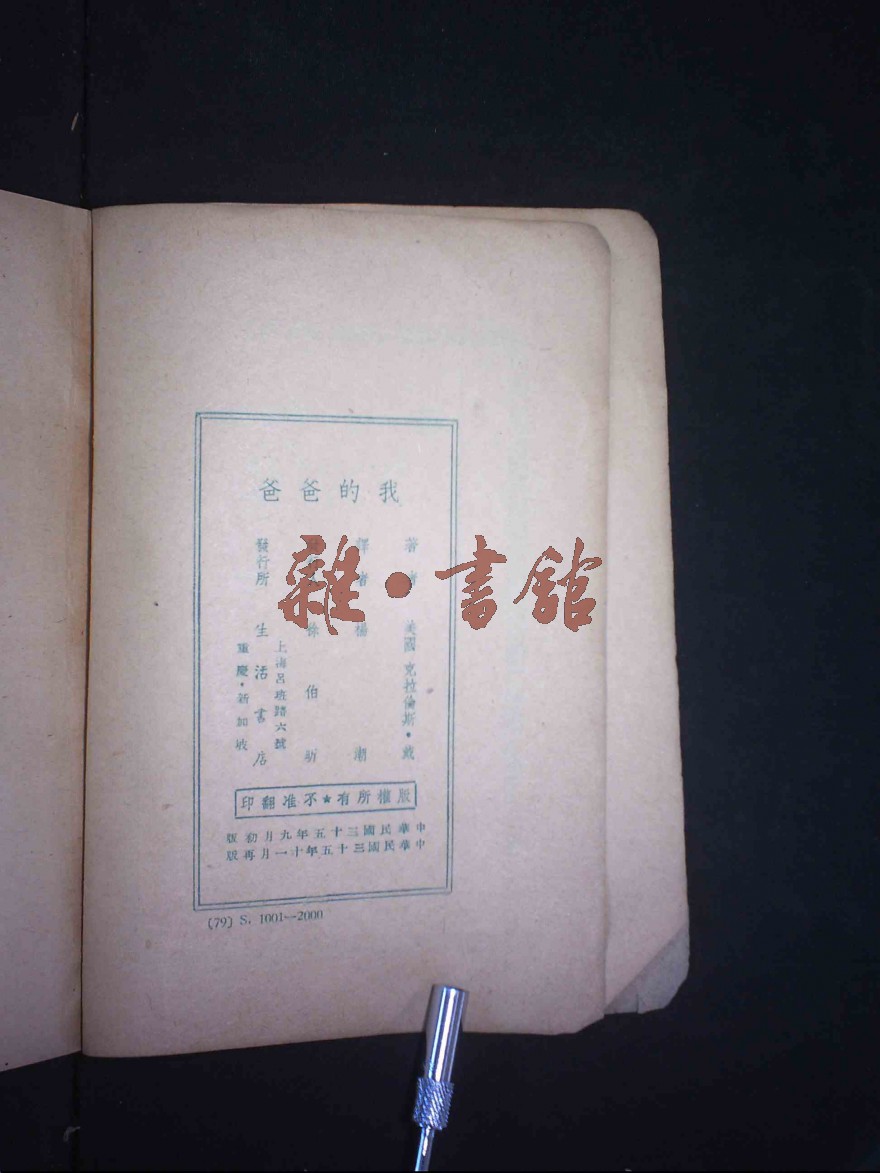 我的爸爸
著者 美國克拉倫斯·戴
譯者 楊 潮
徐伯昕
發行所 生活書店
上海呂班路六號
重慶·新加坡
版權所有★不准翻印
中華民國三十五年九月初版
中華民國三十五年十一月再版
(79) S. 1001--2000
雜·書館